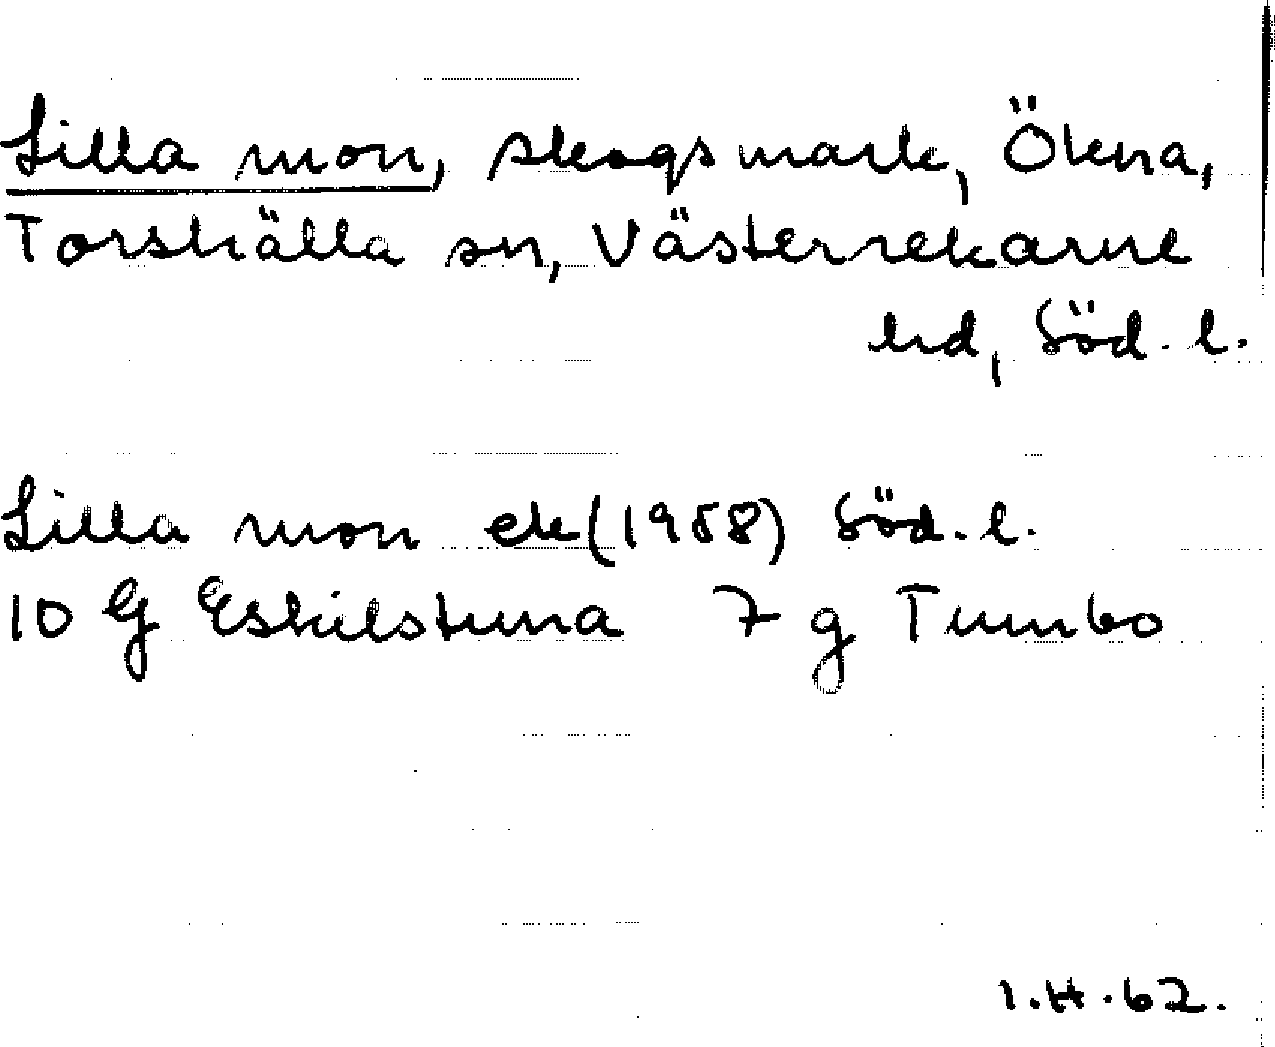 Lilla mon, skogsmark, Ökna,
Torshälla sn, Västerrekarne
hd, Söd. l.
Lilla mon ek (1958) Söd. l.
10 G Eskilstuna 7 g Tumbo
I.H. 62.